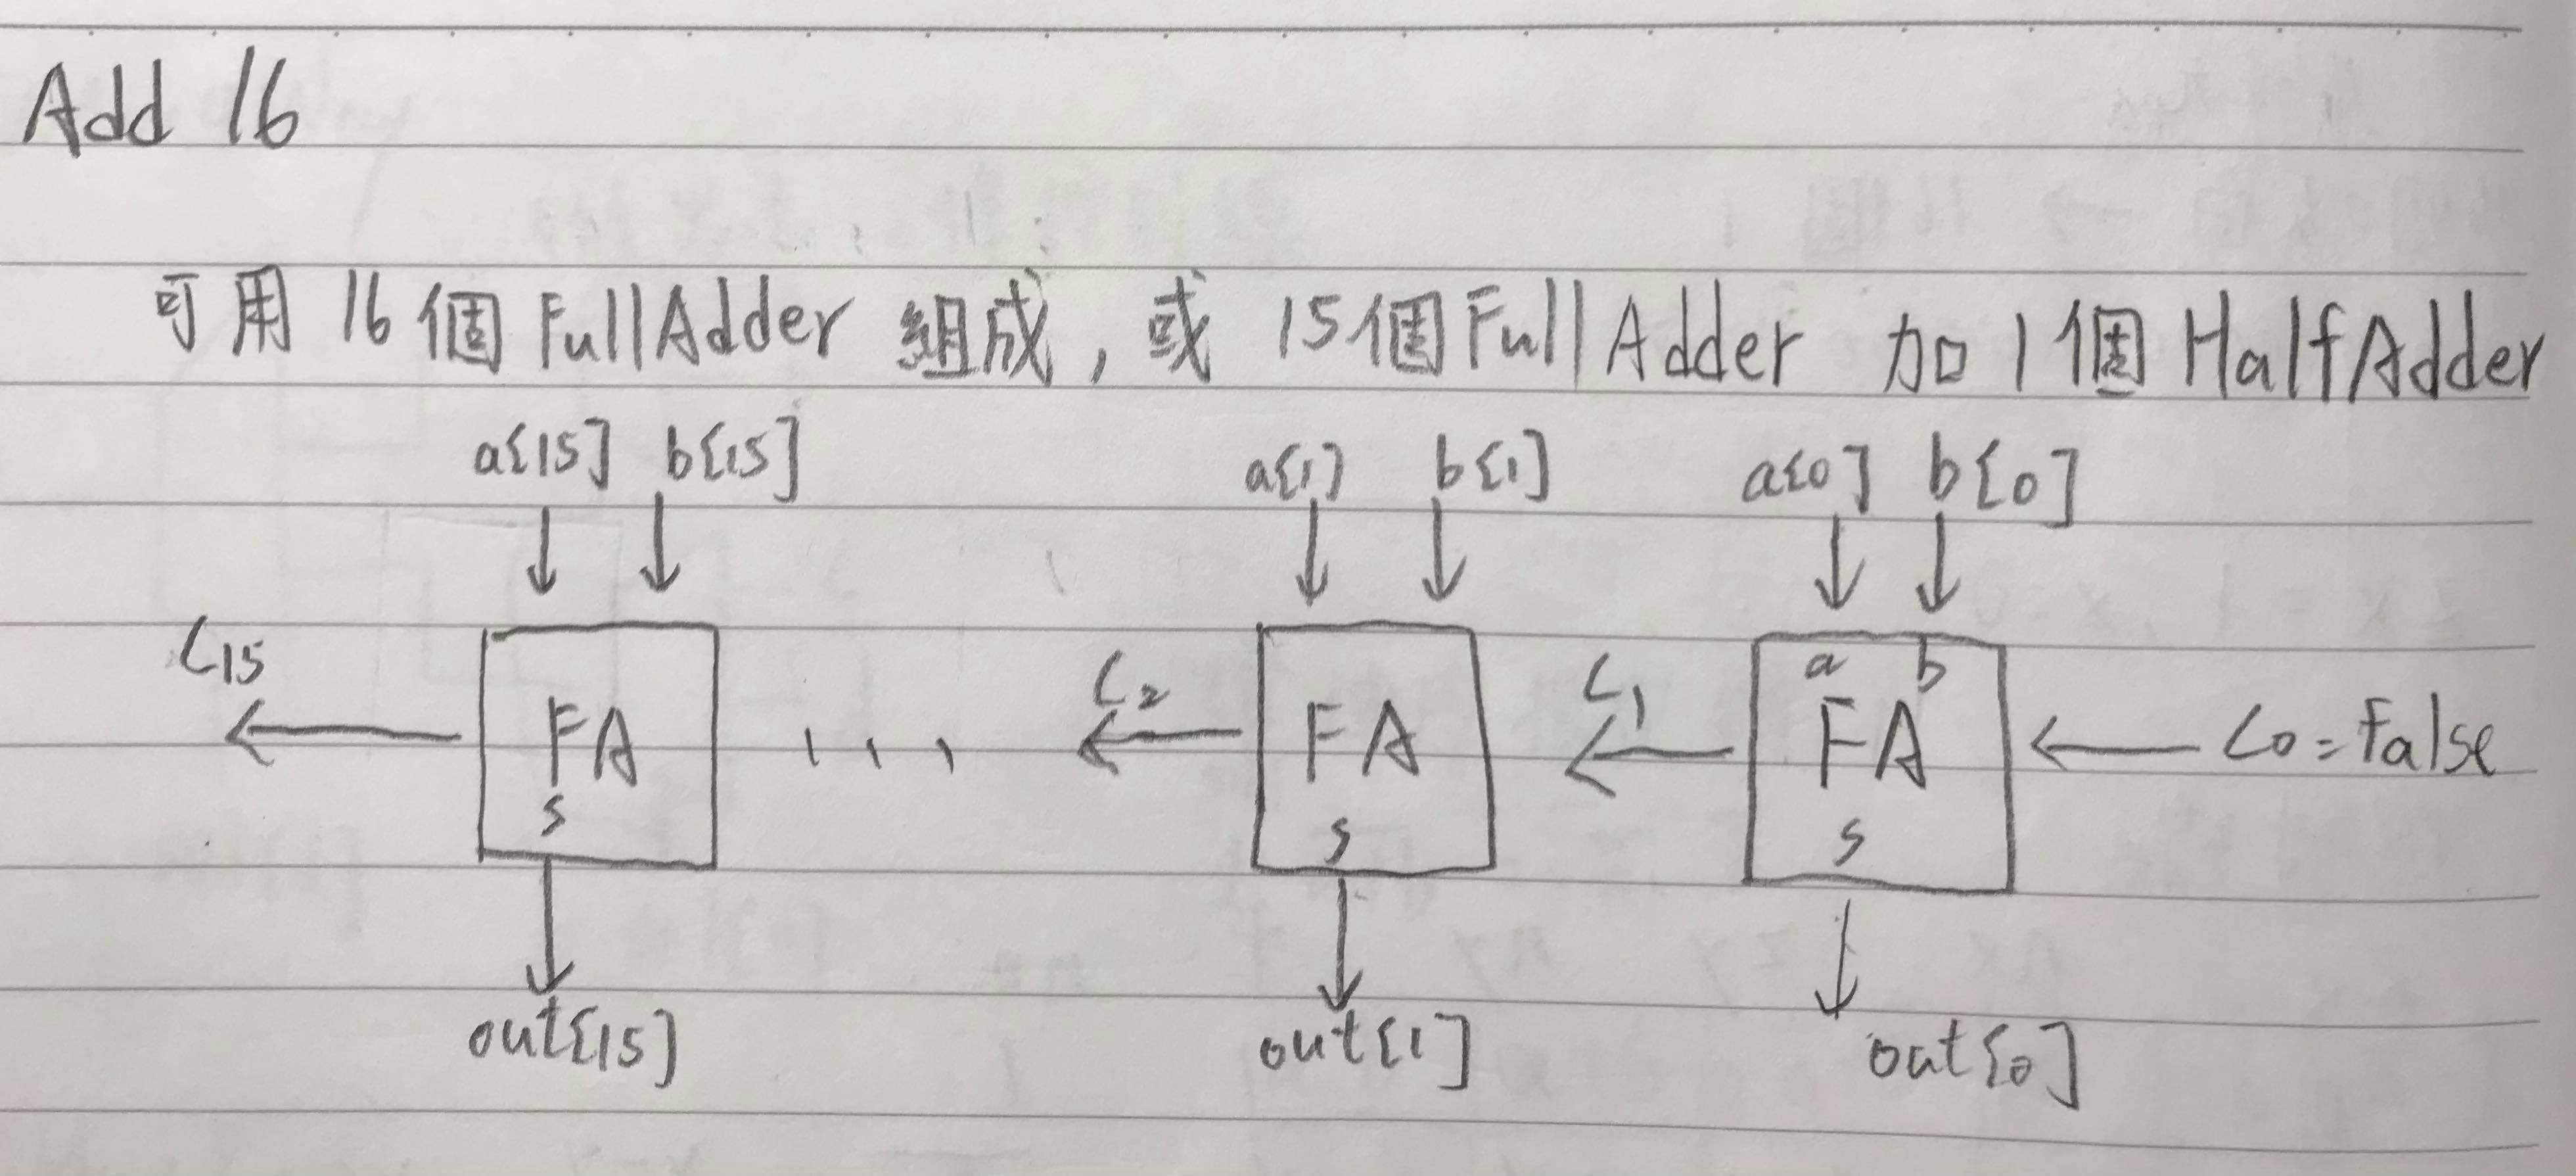 Add 16
可用 16個 FullAdder 組成, 或 15個 FullAdder 加 1個 HalfAdder
a[15] b[15] a[1] b[1] a[0] b[0]
C15 C2 C1 a b
FA ... FA FA C0=False
s s s
out[15] out[1] out[0]